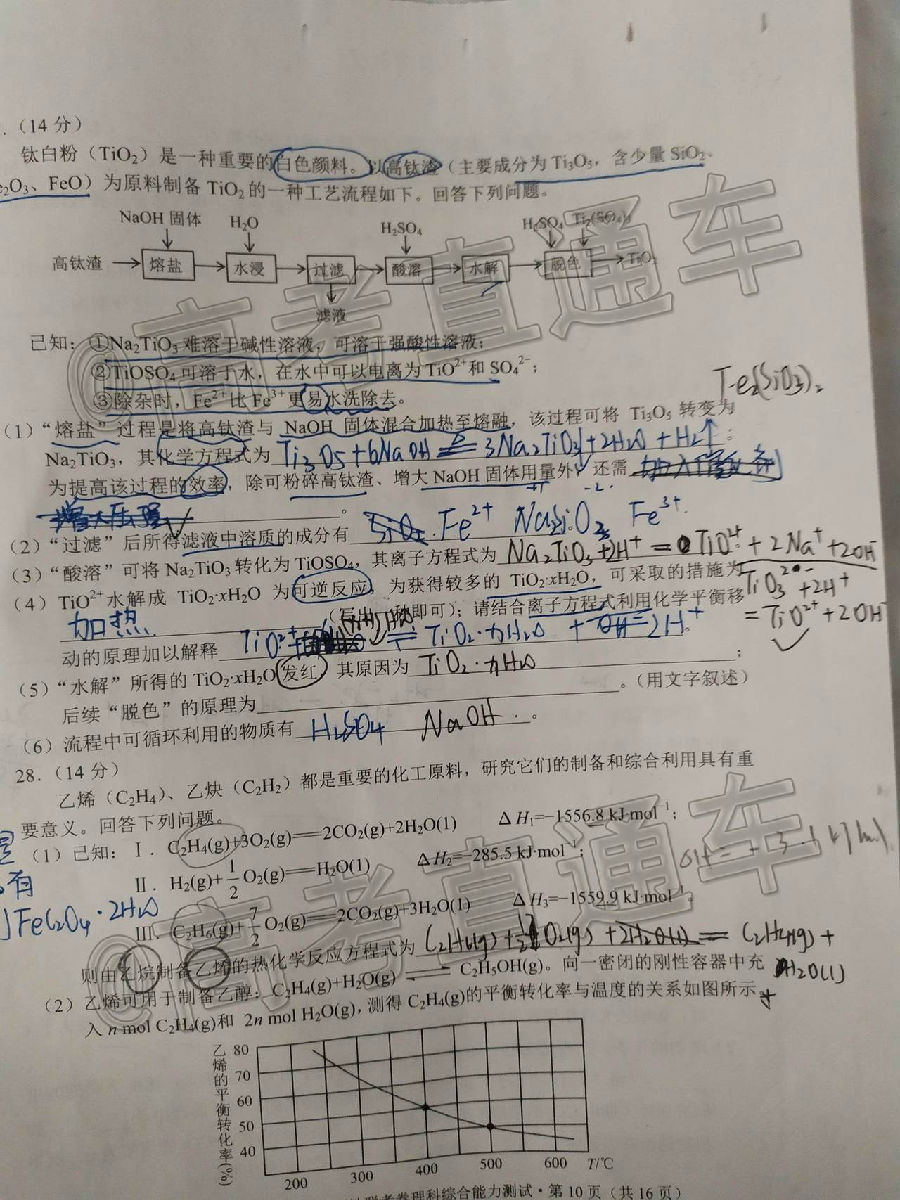 .（14 分）
钛白粉（TiO₂）是一种重要的白色颜料。以高钛渣（主要成分为 Ti₃O₅，含少量 SiO₂、
e₂O₃、FeO）为原料制备 TiO₂ 的一种工艺流程如下。回答下列问题。
NaOH 固体 H₂O H₂SO₄ H₂SO₄ Ti₂(SO₄)₃
高钛渣 熔盐 水浸 过滤 酸溶 水解 脱色 TiO₂
滤液
已知：①Na₂TiO₃ 难溶于碱性溶液，可溶于强酸性溶液；
②TiOSO₄ 可溶于水，在水中可以电离为 TiO²⁺和 SO₄²⁻；
③除杂时，Fe²⁺比 Fe³⁺更易水洗除去。
（1）“熔盐”过程是将高钛渣与 NaOH 固体混合加热至熔融，该过程可将 Ti₃O₅ 转变为
Na₂TiO₃，其化学方程式为 Ti₃O₅+6NaOH = 3Na₂TiO₃+2H₂O+H₂↑；
为提高该过程的效率，除可粉碎高钛渣、增大 NaOH 固体用量外，还需
。
（2）“过滤”后所得滤液中溶质的成分有 Fe²⁺ Na₂SiO₃ Fe³⁺.
（3）“酸溶”可将 Na₂TiO₃ 转化为 TiOSO₄，其离子方程式为 Na₂TiO₃+2H⁺=TiO²⁺+2Na⁺+2OH⁻
TiO₃²⁻+2H⁺
=TiO²⁺+2OH
（4）TiO²⁺水解成 TiO₂·xH₂O 为可逆反应，为获得较多的 TiO₂·xH₂O，可采取的措施为
加热（写出一种即可）；请结合离子方程式利用化学平衡移
动的原理加以解释 TiO²⁺ ⇌ TiO₂·xH₂O + 2H⁺
（5）“水解”所得的 TiO₂·xH₂O 发红，其原因为 TiO₂·xH₂O；
后续“脱色”的原理为。（用文字叙述）
（6）流程中可循环利用的物质有 H₂SO₄ NaOH.。
28.（14 分）
乙烯（C₂H₄）、乙炔（C₂H₂）都是重要的化工原料，研究它们的制备和综合利用具有重
要意义。回答下列问题。
（1）已知：Ⅰ. C₂H₄(g)+3O₂(g)══2CO₂(g)+2H₂O(l) ΔH₁=-1556.8 kJ·mol⁻¹；
Ⅱ. H₂(g)+1/2O₂(g)══H₂O(l) ΔH₂=-285.5 kJ·mol⁻¹；
有
FeC₂O₄·2H₂O
Ⅲ. C₂H₆(g)+7/2O₂(g)══2CO₂(g)+3H₂O(l) ΔH₃=-1559.9 kJ·mol⁻¹。
则由乙烷制备乙烯的热化学反应方程式为 C₂H₆(g)+1/2O₂(g) = C₂H₄(g)+
H₂O(l)
（2）乙烯可用于制备乙醇：C₂H₄(g)+H₂O(g)⇌C₂H₅OH(g)。向一密闭的刚性容器中充
入 n mol C₂H₄(g)和 2n mol H₂O(g)，测得 C₂H₄(g)的平衡转化率与温度的关系如图所示
乙烯的平衡转化率(%)
80
70
60
50
40
200 300 400 500 600 T/℃
联考卷理科综合能力测试·第 10 页（共 16 页）
@高考直通车
@高考直通车